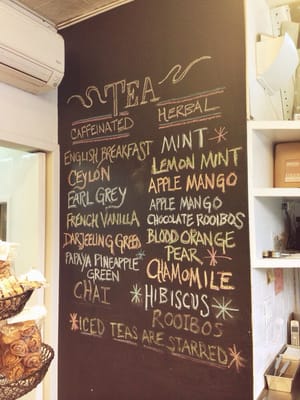 TEA
CAFFEINATED
ENGLISH BREAKFAST
CEYLON
EARL GREY
FRENCH VANILLA
DARJEELING GREEN
PAPAYA PINEAPPLE
GREEN
CHAI
HERBAL
MINT
LEMON MINT
APPLE MANGO
APPLE MANGO
CHOCOLATE ROOIBOS
BLOOD ORANGE
PEAR
CHAMOMILE
HIBISCUS
ROOIBOS
ICED TEAS ARE STARRED